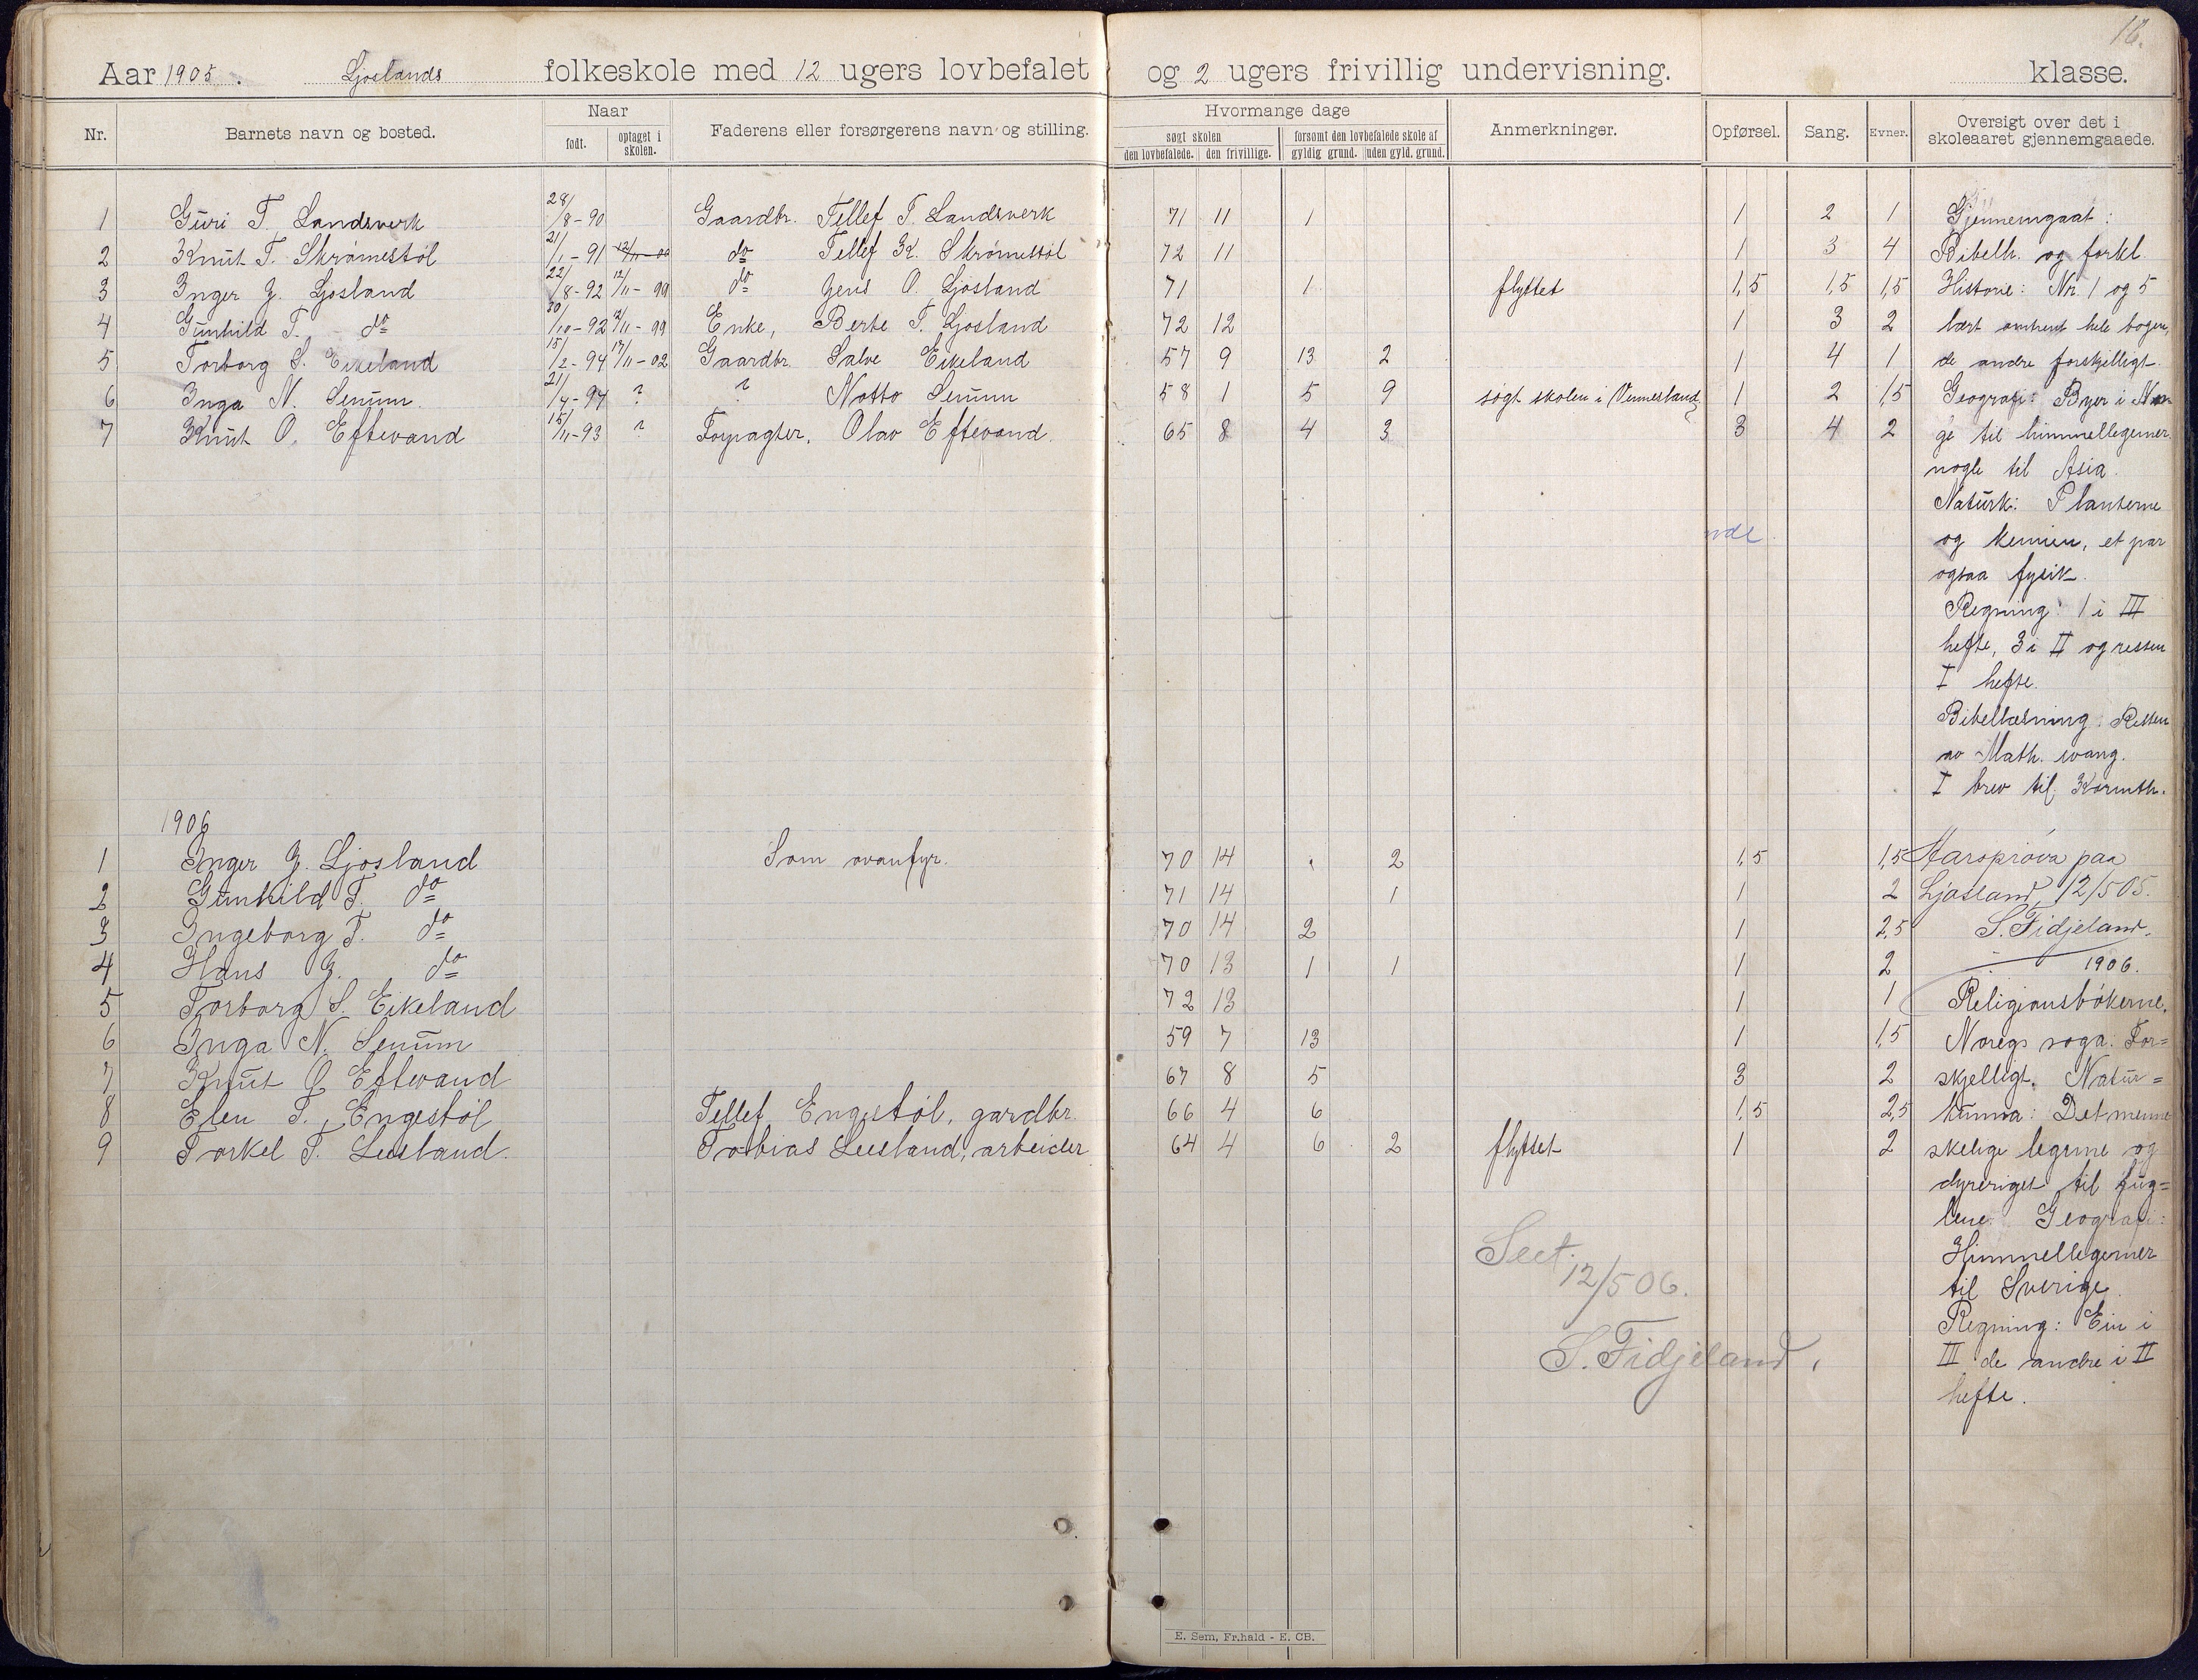 18.
Aar 1905. Ljoslands folkeskole med 12 ugers lovbefalet og 2 ugers frivillig undervisning. klasse.
Nr. Barnets navn og bosted. Naar født. optaget i skolen. Faderens eller forsørgerens navn og stilling. Hvormange dage søgt skolen den lovbefalede. den frivillige. forsømt den lovbefalede skole af gyldig grund. uden gyld. grund. Anmerkninger. Opførsel. Sang. Evner. Oversigt over det i skoleaaret gjennemgaaede.
1 Guri T. Landsverk 28/8-90 Gaardbr. Tellef T. Landsverk 71 11 1 1 2 1 Gjennemgaat:
2 Knut T. Skrømestøl 21/1-91 12/11-00 do Tellef K. Skrømestøl 72 11 1 3 4 Bibelh. og forkl.
3 Inger J. Ljosland 22/8-92 12/11-99 do Jens O. Ljosland 71 1 flyttet 1,5 1,5 1,5 Historie: Nr. 1 og 5
4 Gunhild T. do 30/10-92 12/11-99 Enke, Berte T. Ljosland 72 12 1 3 2 lært omtrent hele bogen,
5 Torborg S. Eikeland 15/2-94 17/11-02 Gaardbr. Salve Eikeland 57 9 13 2 1 4 1 de andre forskjelligt.
6 Inga N. Senum. 21/4-94 ? ? Notto Senum 58 1 5 9 søgt skolen i Vennesland 1 2 1,5 Geografi: Byer i Nor-
7 Knut O. Eftevand 15/11-93 ? Forpagter, Olav Eftevand. 65 8 4 3 3 4 2 ge til himmellegemer
nogle til Asia.
Naturk: Planterne
nde
og kemien, et par
ogsaa fysik.
Regning: 1 i III
hefte, 3 i II og resten
I hefte.
Bibellæsning: Resten
av Math. evang.
I brev til Korinth.
1906
1 Inger J. Ljosland Som ovanfyr. 70 14 2 1,5 1,5 Aarsprøva paa
2 Gunhild T. do 71 14 1 1 2 Ljosland, 12/5 05.
3 Ingeborg T. do 70 14 2 1 2,5 S. Fidjeland.
4 Hans J. do 70 13 1 1 1 2 1906.
5 Torborg S. Eikeland 72 13 1 1 Religionsbøkerne.
6 Inga N. Senum 59 7 13 1 1,5 Noregs soga: For=
7 Knut O Eftevand 67 8 5 3 2 skjelligt. Natur=
8 Elen T. Engestøl Tellef Engestøl, gardbr. 66 4 6 1,5 2,5 kunna: Det menne
9 Torkel T. Leesland. Tobias Leesland, arbeider 64 4 6 2 flyttet 1 2 skelige legeme og
dyreriget til fug=
lene. Geografi:
Himmellegemer
til Sverige.
Regning: Ein i
III de andre i II
hefte.
Seet
12/5 06.
S. Fidjeland.
E. Sem, Fr.hald - E. CB.